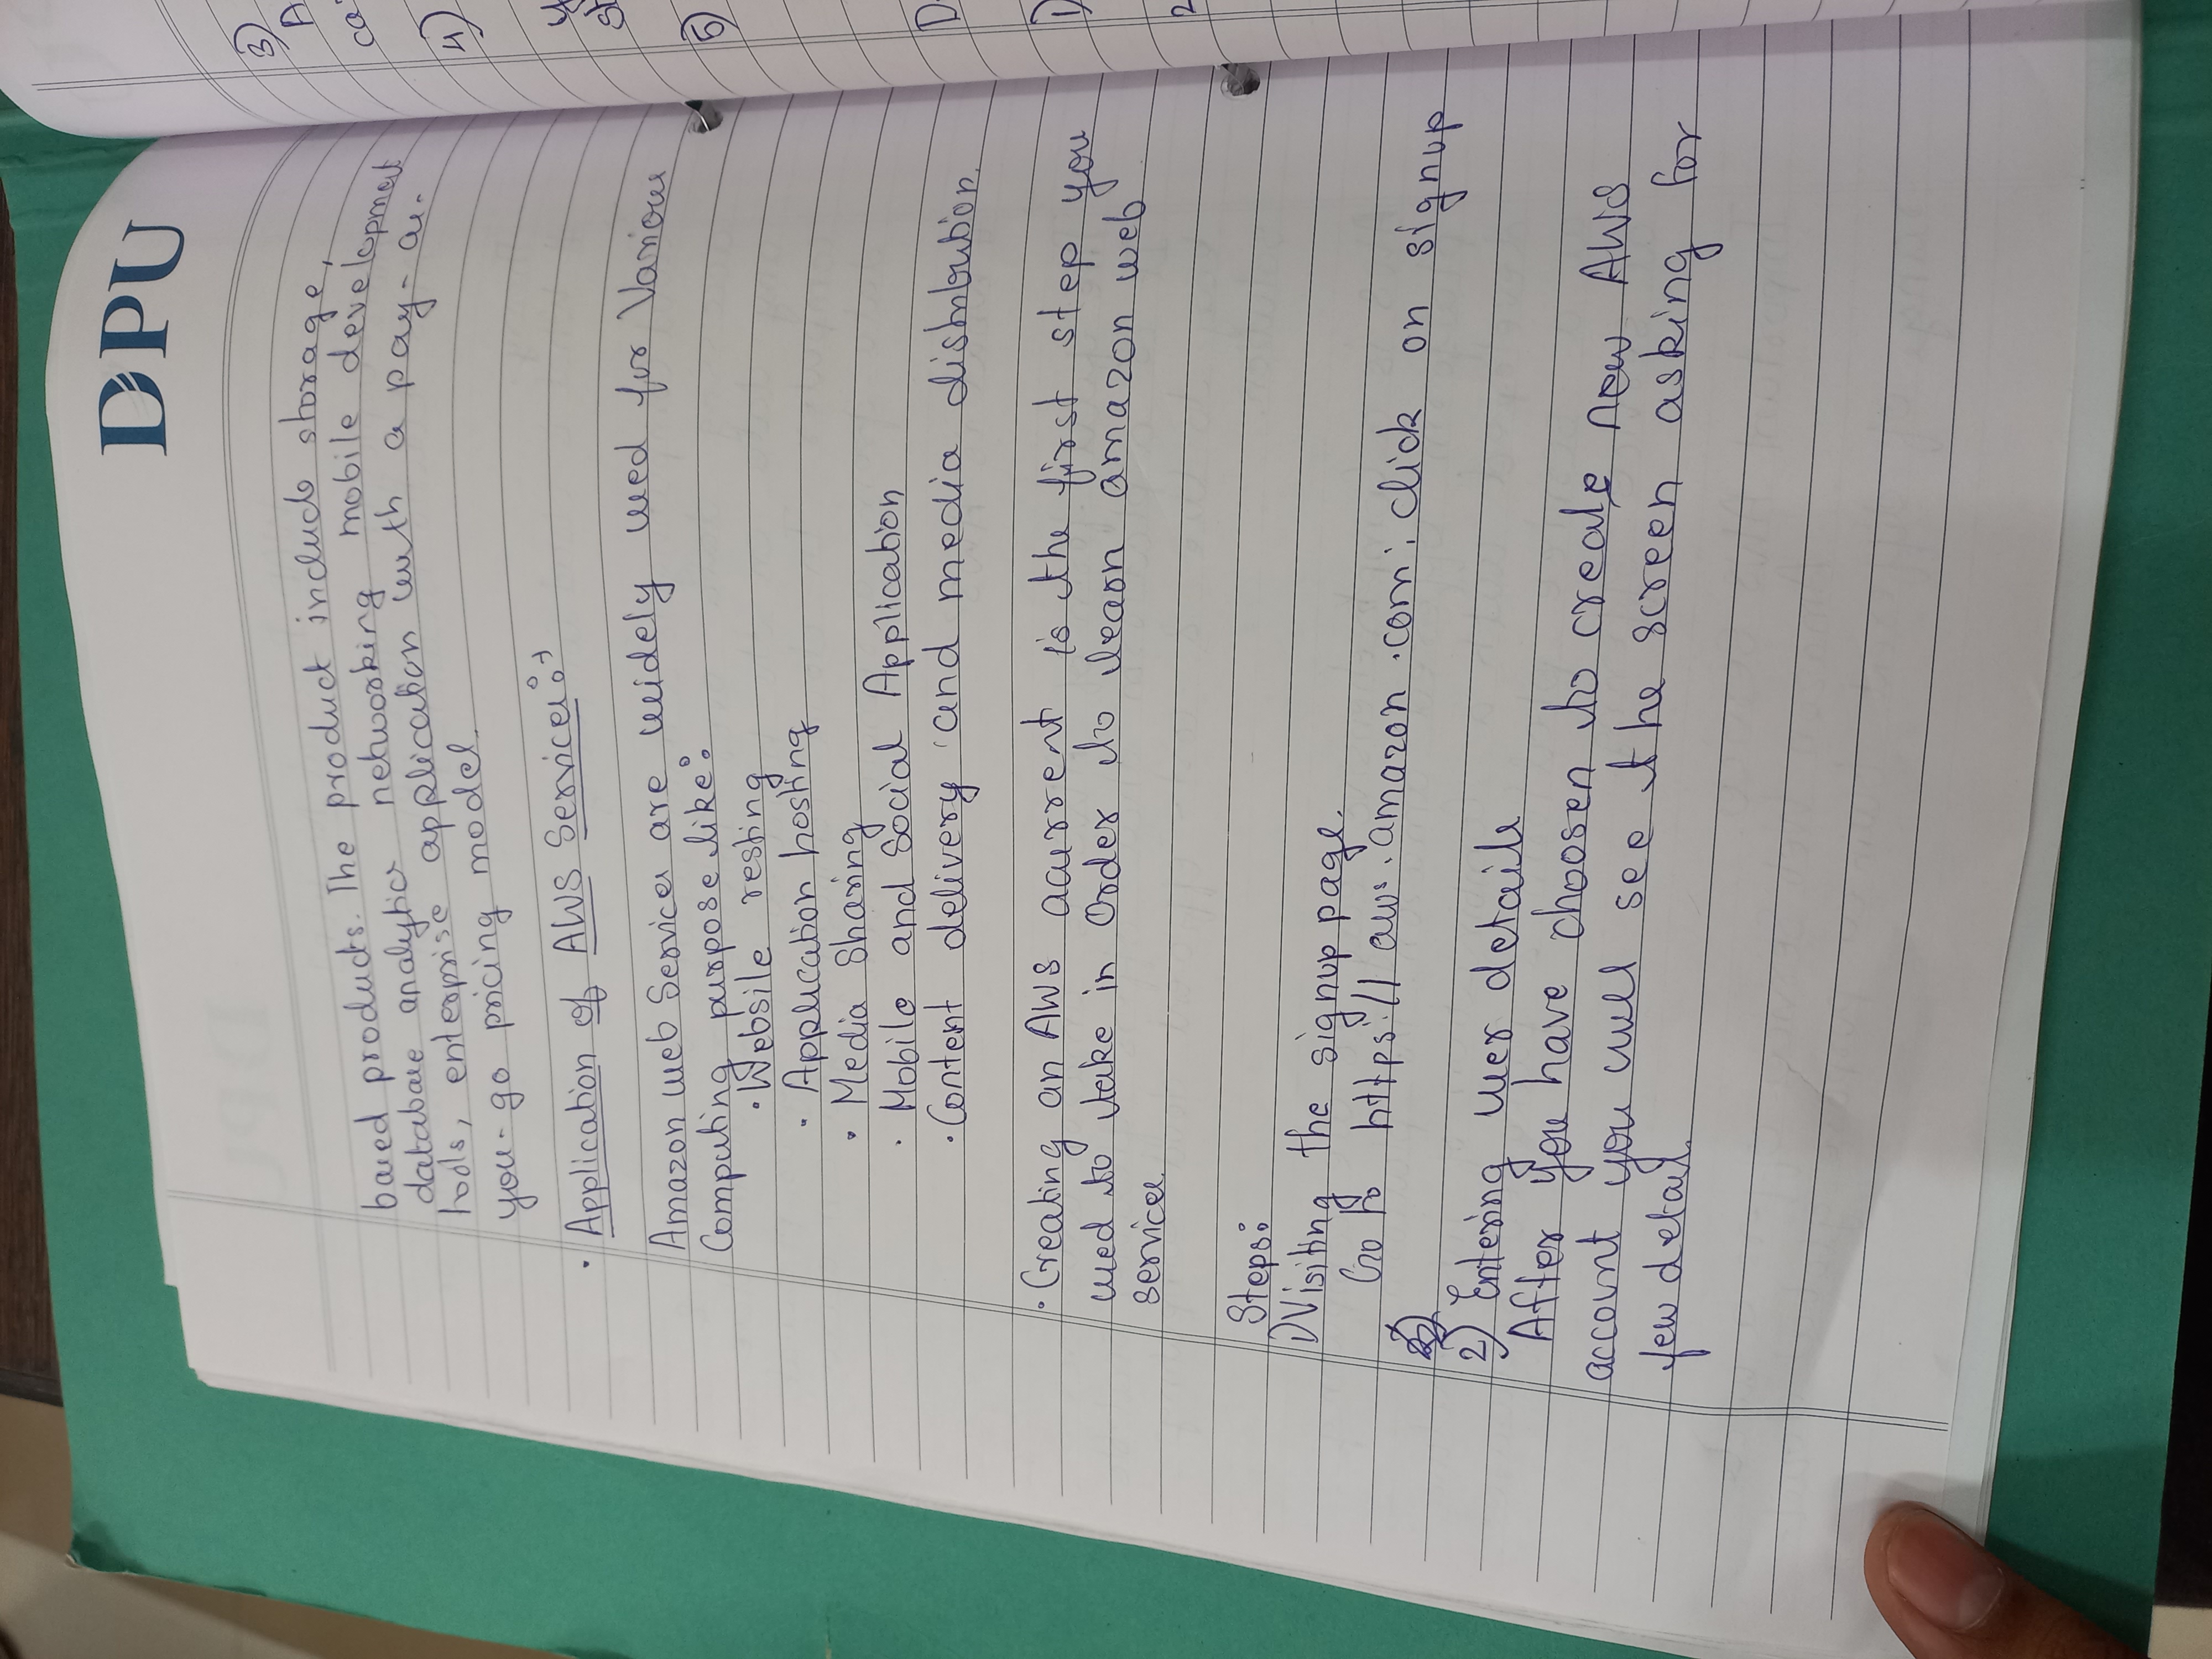 DPU
based products. The product include storage,
database analytics networking mobile development
tools, enterprise application with a pay-as-
you-go pricing model.
• Application of AWS Services:→
Amazon web Services are widely used for Various
Computing purpose like:
• Website resting
• Application hosting
• Media Sharing
• Mobile and Social Application
• Content delivery and media distribution.
• Creating an AWS acurrent is the first step you
used to take in Order to learn amazon web
services.
Steps:
1) Visiting the signup page.
Go to https://aws.amazon.com; click on signup
2) Entering user details
After you have choosen to create new AWS
account you will see the screen asking for
few detail.
3)
A
ca
4)
y
st
5)
D
1)
2